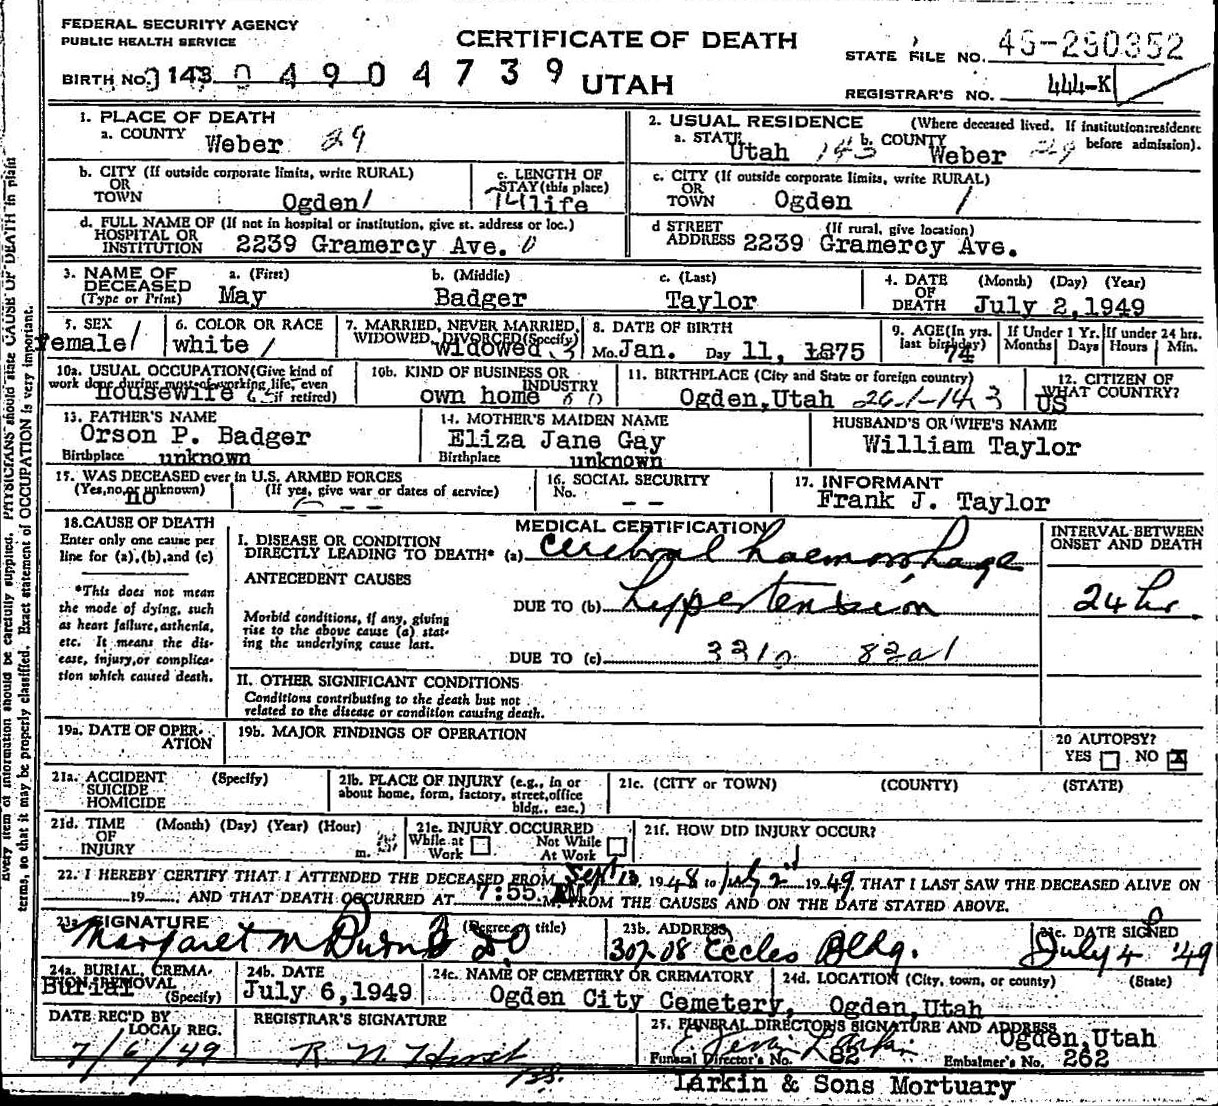 FEDERAL SECURITY AGENCY
PUBLIC HEALTH SERVICE
CERTIFICATE OF DEATH
UTAH
STATE FILE NO.
BIRTH NO. 143 0 4 9 0 4 7 3 9
REGISTRAR'S NO. 444-K
1. PLACE OF DEATH
a. COUNTY Weber 29
2. USUAL RESIDENCE (Where deceased lived. If institution:residence before admission).
a. STATE Utah 143 b. COUNTY Weber 29
b. CITY (If outside corporate limits, write RURAL)
OR
TOWN Ogden
c. LENGTH OF
STAY (this place)
life
c. CITY (If outside corporate limits, write RURAL)
OR
TOWN Ogden
d. FULL NAME OF (If not in hospital or institution, give st. address or loc.)
HOSPITAL OR
INSTITUTION 2239 Gramercy Ave. 0
d STREET (If rural, give location)
ADDRESS 2239 Gramercy Ave.
3. NAME OF
DECEASED
(Type or Print)
a. (First) b. (Middle) c. (Last)
May Badger Taylor
4. DATE
OF
DEATH
(Month) (Day) (Year)
July 2,1949
5. SEX
female
6. COLOR OR RACE
white
7. MARRIED, NEVER MARRIED,
WIDOWED, DIVORCED(Specify)
widowed 3
8. DATE OF BIRTH
Mo. Jan. Day 11, 1875
9. AGE(In yrs.
last birthday)
74
If Under 1 Yr.
Months Days
If under 24 hrs.
Hours Min.
10a. USUAL OCCUPATION(Give kind of
work done during most of working life, even
if retired)
housewife
10b. KIND OF BUSINESS OR
INDUSTRY
own home
11. BIRTHPLACE (City and State or foreign country)
Ogden,Utah
12. CITIZEN OF
WHAT COUNTRY?
US
13. FATHER'S NAME
Orson P. Badger
Birthplace unknown
14. MOTHER'S MAIDEN NAME
Eliza Jane Gay
Birthplace unknown
HUSBAND'S OR WIFE'S NAME
William Taylor
15. WAS DECEASED ever in U.S. ARMED FORCES
(Yes,no,or unknown) (If yes, give war or dates of service)
no - -
16. SOCIAL SECURITY
No. - -
17. INFORMANT
Frank J. Taylor
18.CAUSE OF DEATH
Enter only one cause per
line for (a),(b),and (c)
*This does not mean
the mode of dying, such
as heart failure,asthenia,
etc. It means the dis-
ease, injury,or complica-
tion which caused death.
MEDICAL CERTIFICATION
I. DISEASE OR CONDITION
DIRECTLY LEADING TO DEATH* (a) cerebral haemorrhage
ANTECEDENT CAUSES
DUE TO (b) hypertension
Morbid conditions, if any, giving
rise to the above cause (a) stat-
ing the underlying cause last.
DUE TO (c)
INTERVAL BETWEEN
ONSET AND DEATH
24 hr
II. OTHER SIGNIFICANT CONDITIONS
Conditions contributing to the death but not
related to the disease or condition causing death.
19a. DATE OF OPER-
ATION
19b. MAJOR FINDINGS OF OPERATION
20 AUTOPSY?
YES NO X
21a. ACCIDENT (Specify)
SUICIDE
HOMICIDE
21b. PLACE OF INJURY (e.g., in or
about home, form, factory, street,office
bldg., eac.)
21c. (CITY or TOWN) (COUNTY) (STATE)
21d. TIME (Month) (Day) (Year) (Hour)
OF
INJURY m.
21e. INJURY OCCURRED
While at Work Not While At Work
21f. HOW DID INJURY OCCUR?
22. I HEREBY CERTIFY THAT I ATTENDED THE DECEASED FROM Sept 13, 1948 to July 2nd 1949 THAT I LAST SAW THE DECEASED ALIVE ON
19 AND THAT DEATH OCCURRED AT 7:55 AM M. FROM THE CAUSES AND ON THE DATE STATED ABOVE.
23a. SIGNATURE (Degree or title)
Margaret M D.O
23b. ADDRESS
307-08 Eccles Bldg.
23c. DATE SIGNED
July 4 '49
24a. BURIAL, CREMA-
TION,REMOVAL
(Specify)
Burial
24b. DATE
July 6,1949
24c. NAME OF CEMETERY OR CREMATORY
Ogden City Cemetery,
24d. LOCATION (City, town, or county) (State)
Ogden,Utah
DATE REC'D BY
LOCAL REG.
7/6/49
REGISTRAR'S SIGNATURE
25. FUNERAL DIRECTOR'S SIGNATURE AND ADDRESS
Ogden,Utah
Funeral Director's No. 82 Embalmer's No. 262
Larkin & Sons Mortuary
Every item of information should be carefully supplied. PHYSICIANS should state CAUSE OF DEATH in plain
terms, so that it may be properly classified. Exact statement of OCCUPATION is very important.